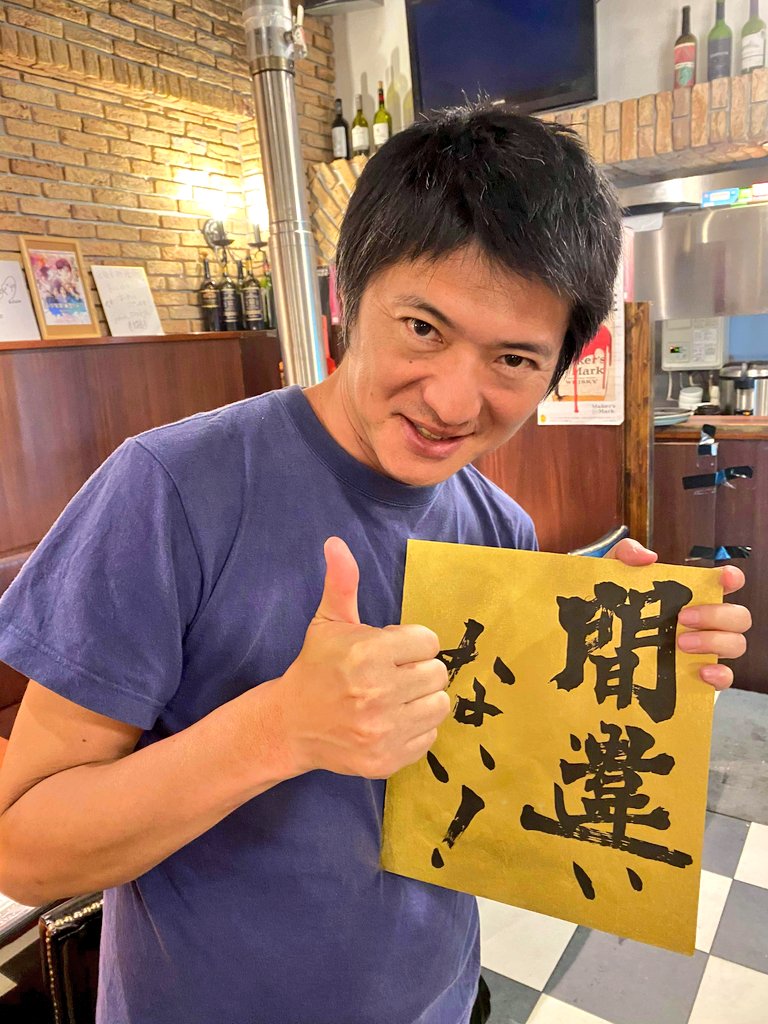 間違い
ない!
Maker's
Mark
WHISKY
Maker's
Mark